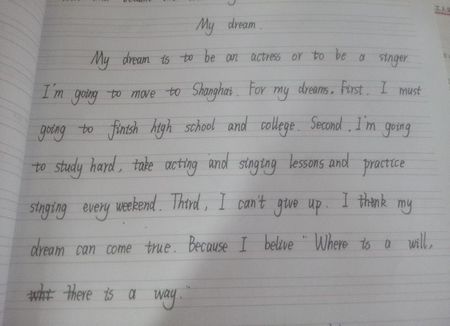 My dream.
My dream is to be an actress or to be a singer.
I'm going to move to Shanghai. For my dreams, First. I must
going to finish high school and college. Second, I'm going
to study hard, take acting and singing lessons and practice
singing every weekend. Third, I can't give up. I think my
dream can come true. Because I belive "Where is a will,
there is a way."